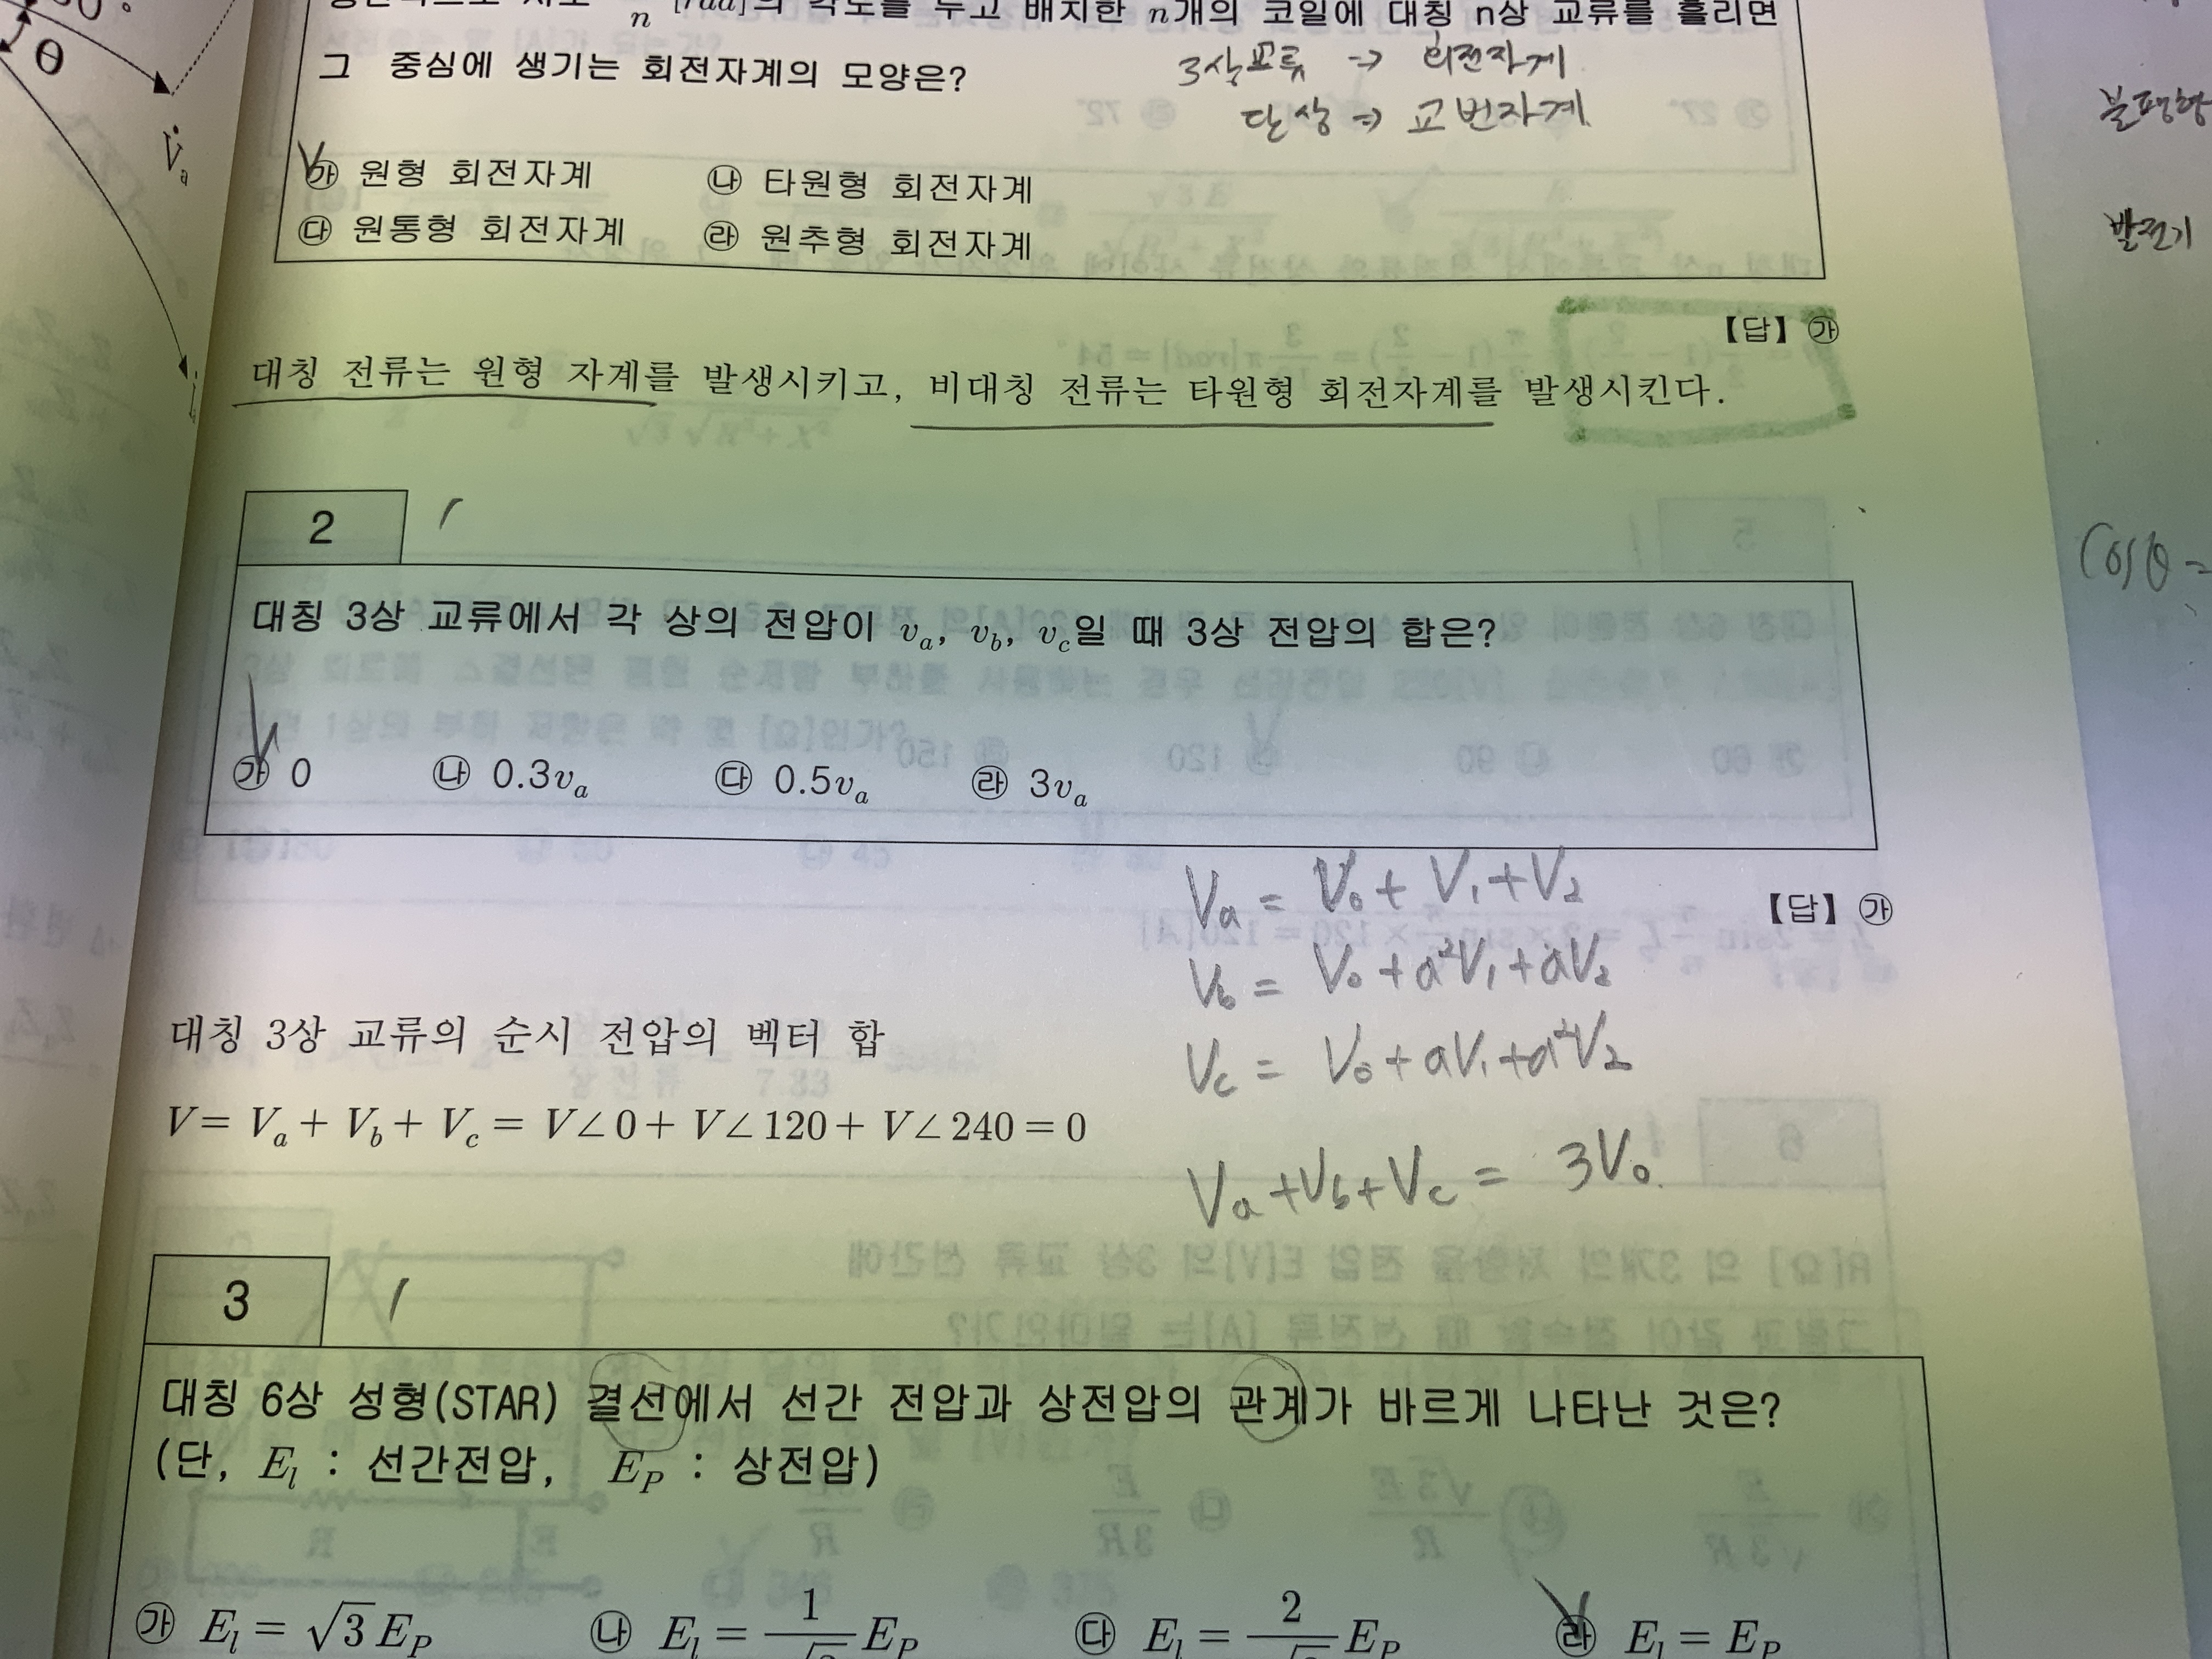 θ
V̇a
n [rad]의 각도를 두고 배치한 n개의 코일에 대칭 n상 교류를 흘리면
그 중심에 생기는 회전자계의 모양은?
3상교류 → 회전자계
단상 → 교번자계
㉮ 원형 회전자계 ㉯ 타원형 회전자계
㉰ 원통형 회전자계 ㉱ 원추형 회전자계
【답】㉮
대칭 전류는 원형 자계를 발생시키고, 비대칭 전류는 타원형 회전자계를 발생시킨다.
2
대칭 3상 교류에서 각 상의 전압이 va, vb, vc일 때 3상 전압의 합은?
㉮ 0 ㉯ 0.3va ㉰ 0.5va ㉱ 3va
【답】㉮
Va = V0 + V1 + V2
Vb = V0 + a²V1 + aV2
Vc = V0 + aV1 + a²V2
Va + Vb + Vc = 3V0
대칭 3상 교류의 순시 전압의 벡터 합
V = Va + Vb + Vc = V∠0 + V∠120 + V∠240 = 0
3
대칭 6상 성형(STAR) 결선에서 선간 전압과 상전압의 관계가 바르게 나타난 것은?
(단, El : 선간전압, EP : 상전압)
㉮ El = √3 EP ㉯ El = 1/ EP ㉰ El = 2/ EP ㉱ El = EP
발전기
Cosθ =